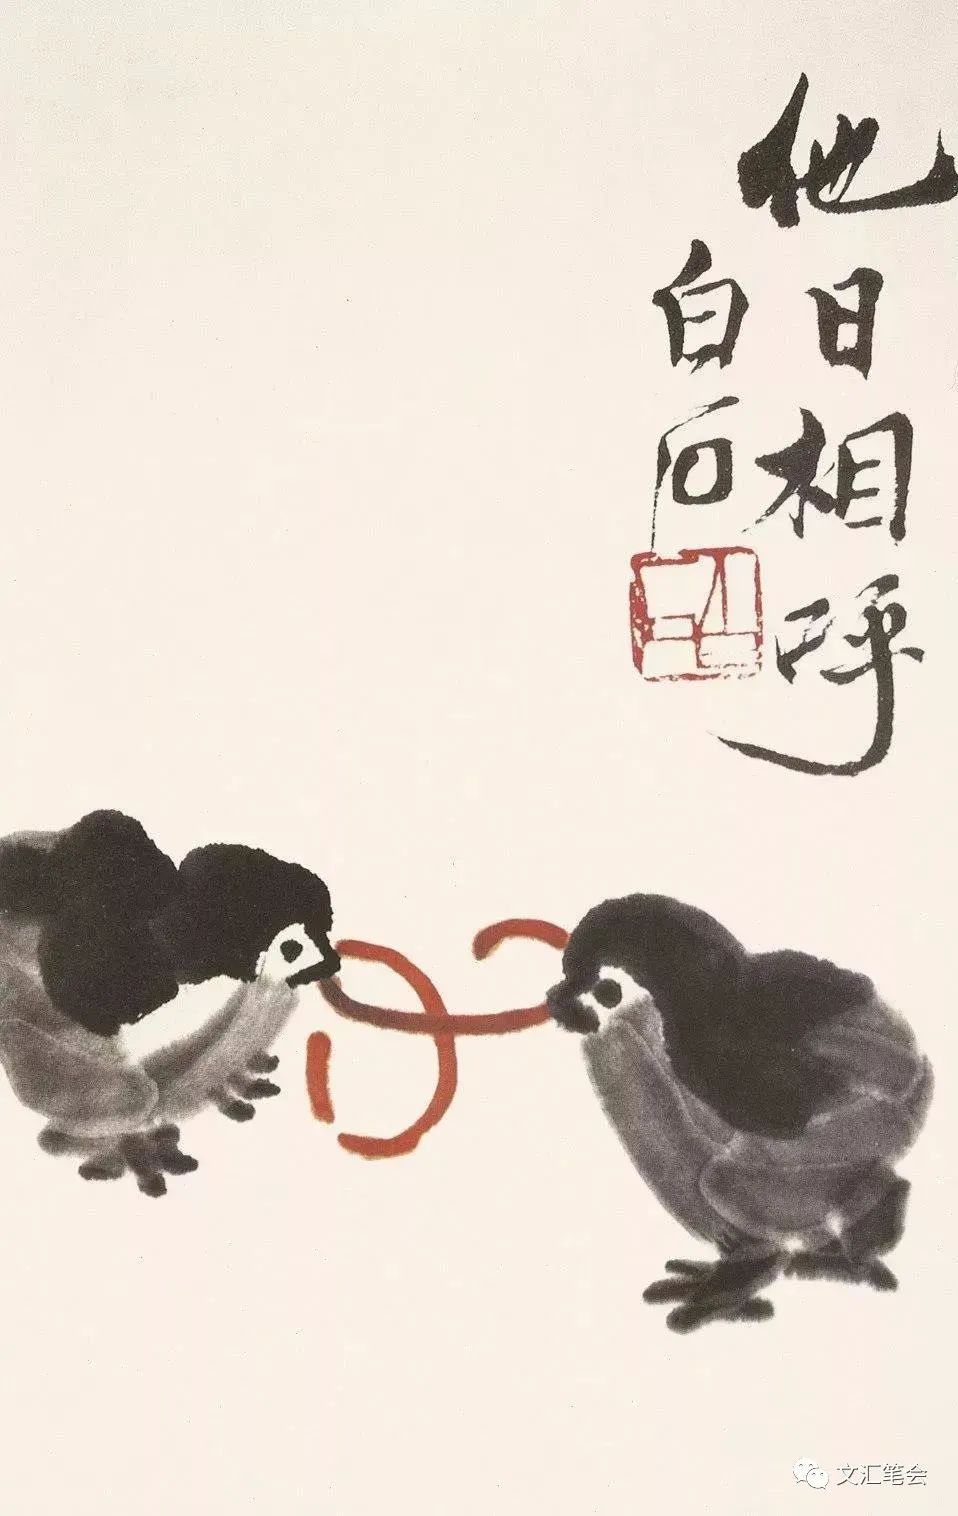 他日相呼
白石
文汇笔会